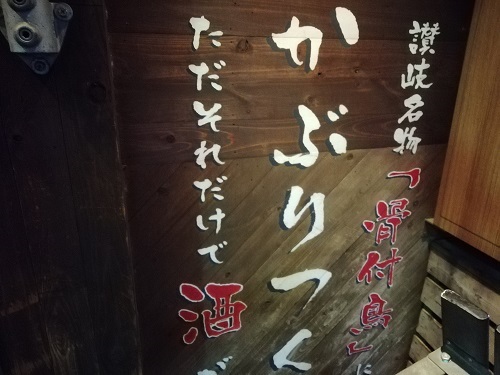 讃岐名物「骨付鳥」に
かぶりつく
ただそれだけで酒が